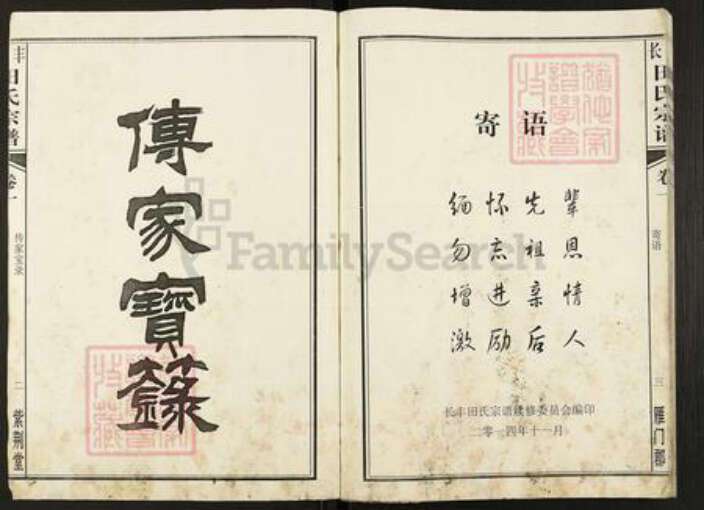 丰田氏宗谱
卷一
传家宝录
二
紫荆堂
傳家寶籙
寄语
缅怀先辈
勿忘祖恩
增进亲情
激励后人
长丰田氏宗谱续修委员会编印
二零一四年十一月
长田氏宗谱
卷一
寄语
三
雁门郡
FamilySearch